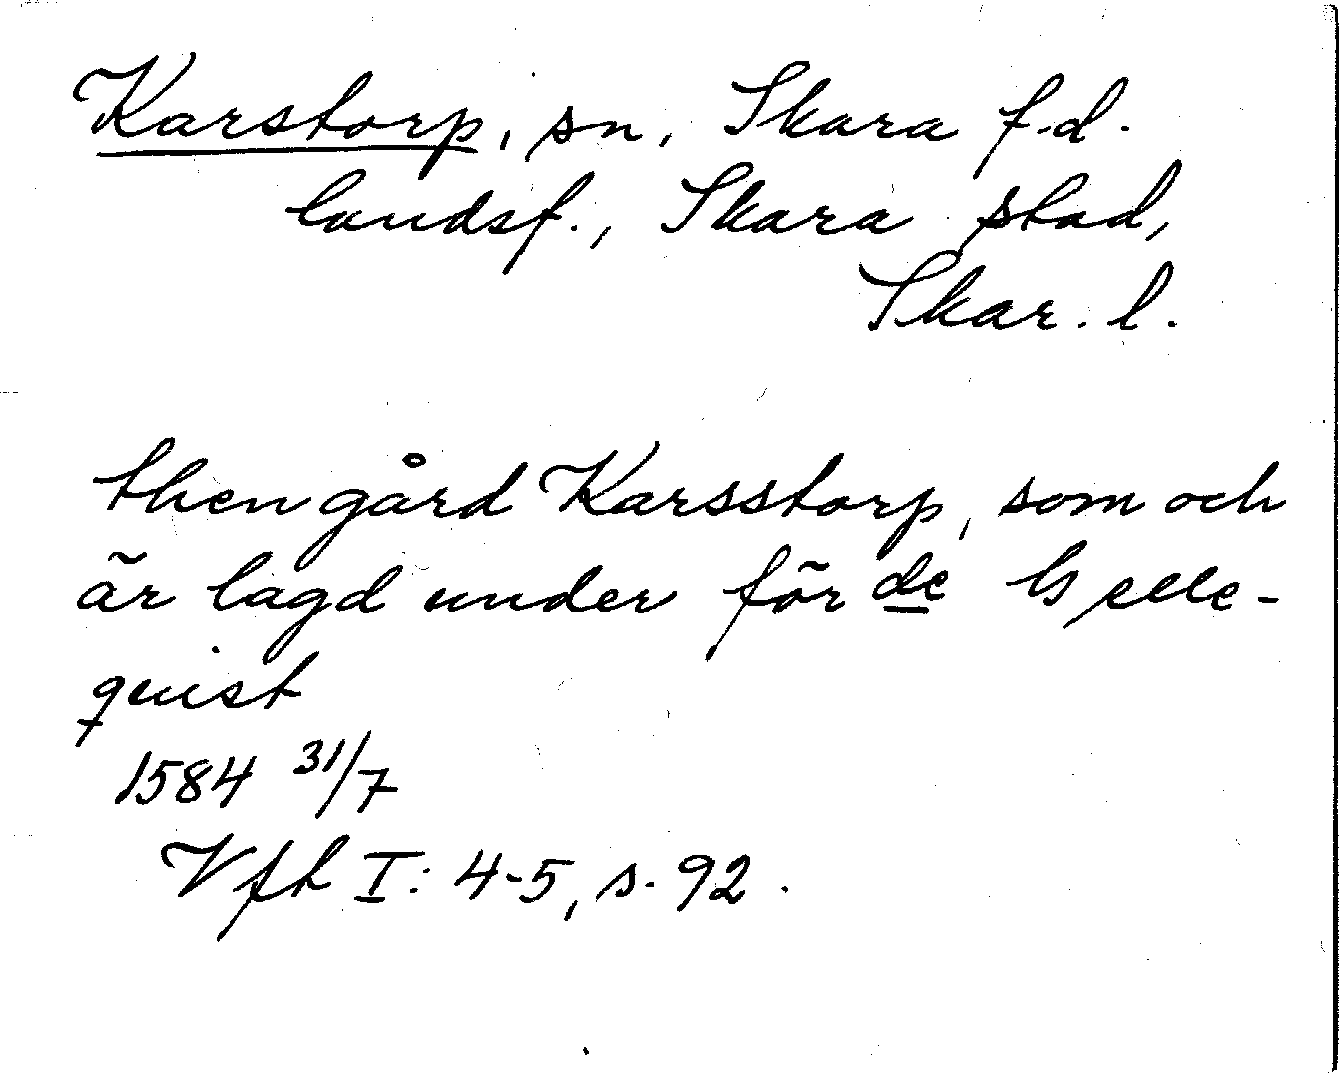 Karstorp, sn, Skara f.d.
landsf., Skara stad,
Skar. l.
then gård Karsstorp, som och
är lagd under för de
quist
1584 31/7
Vft I: 4-5, s. 92.